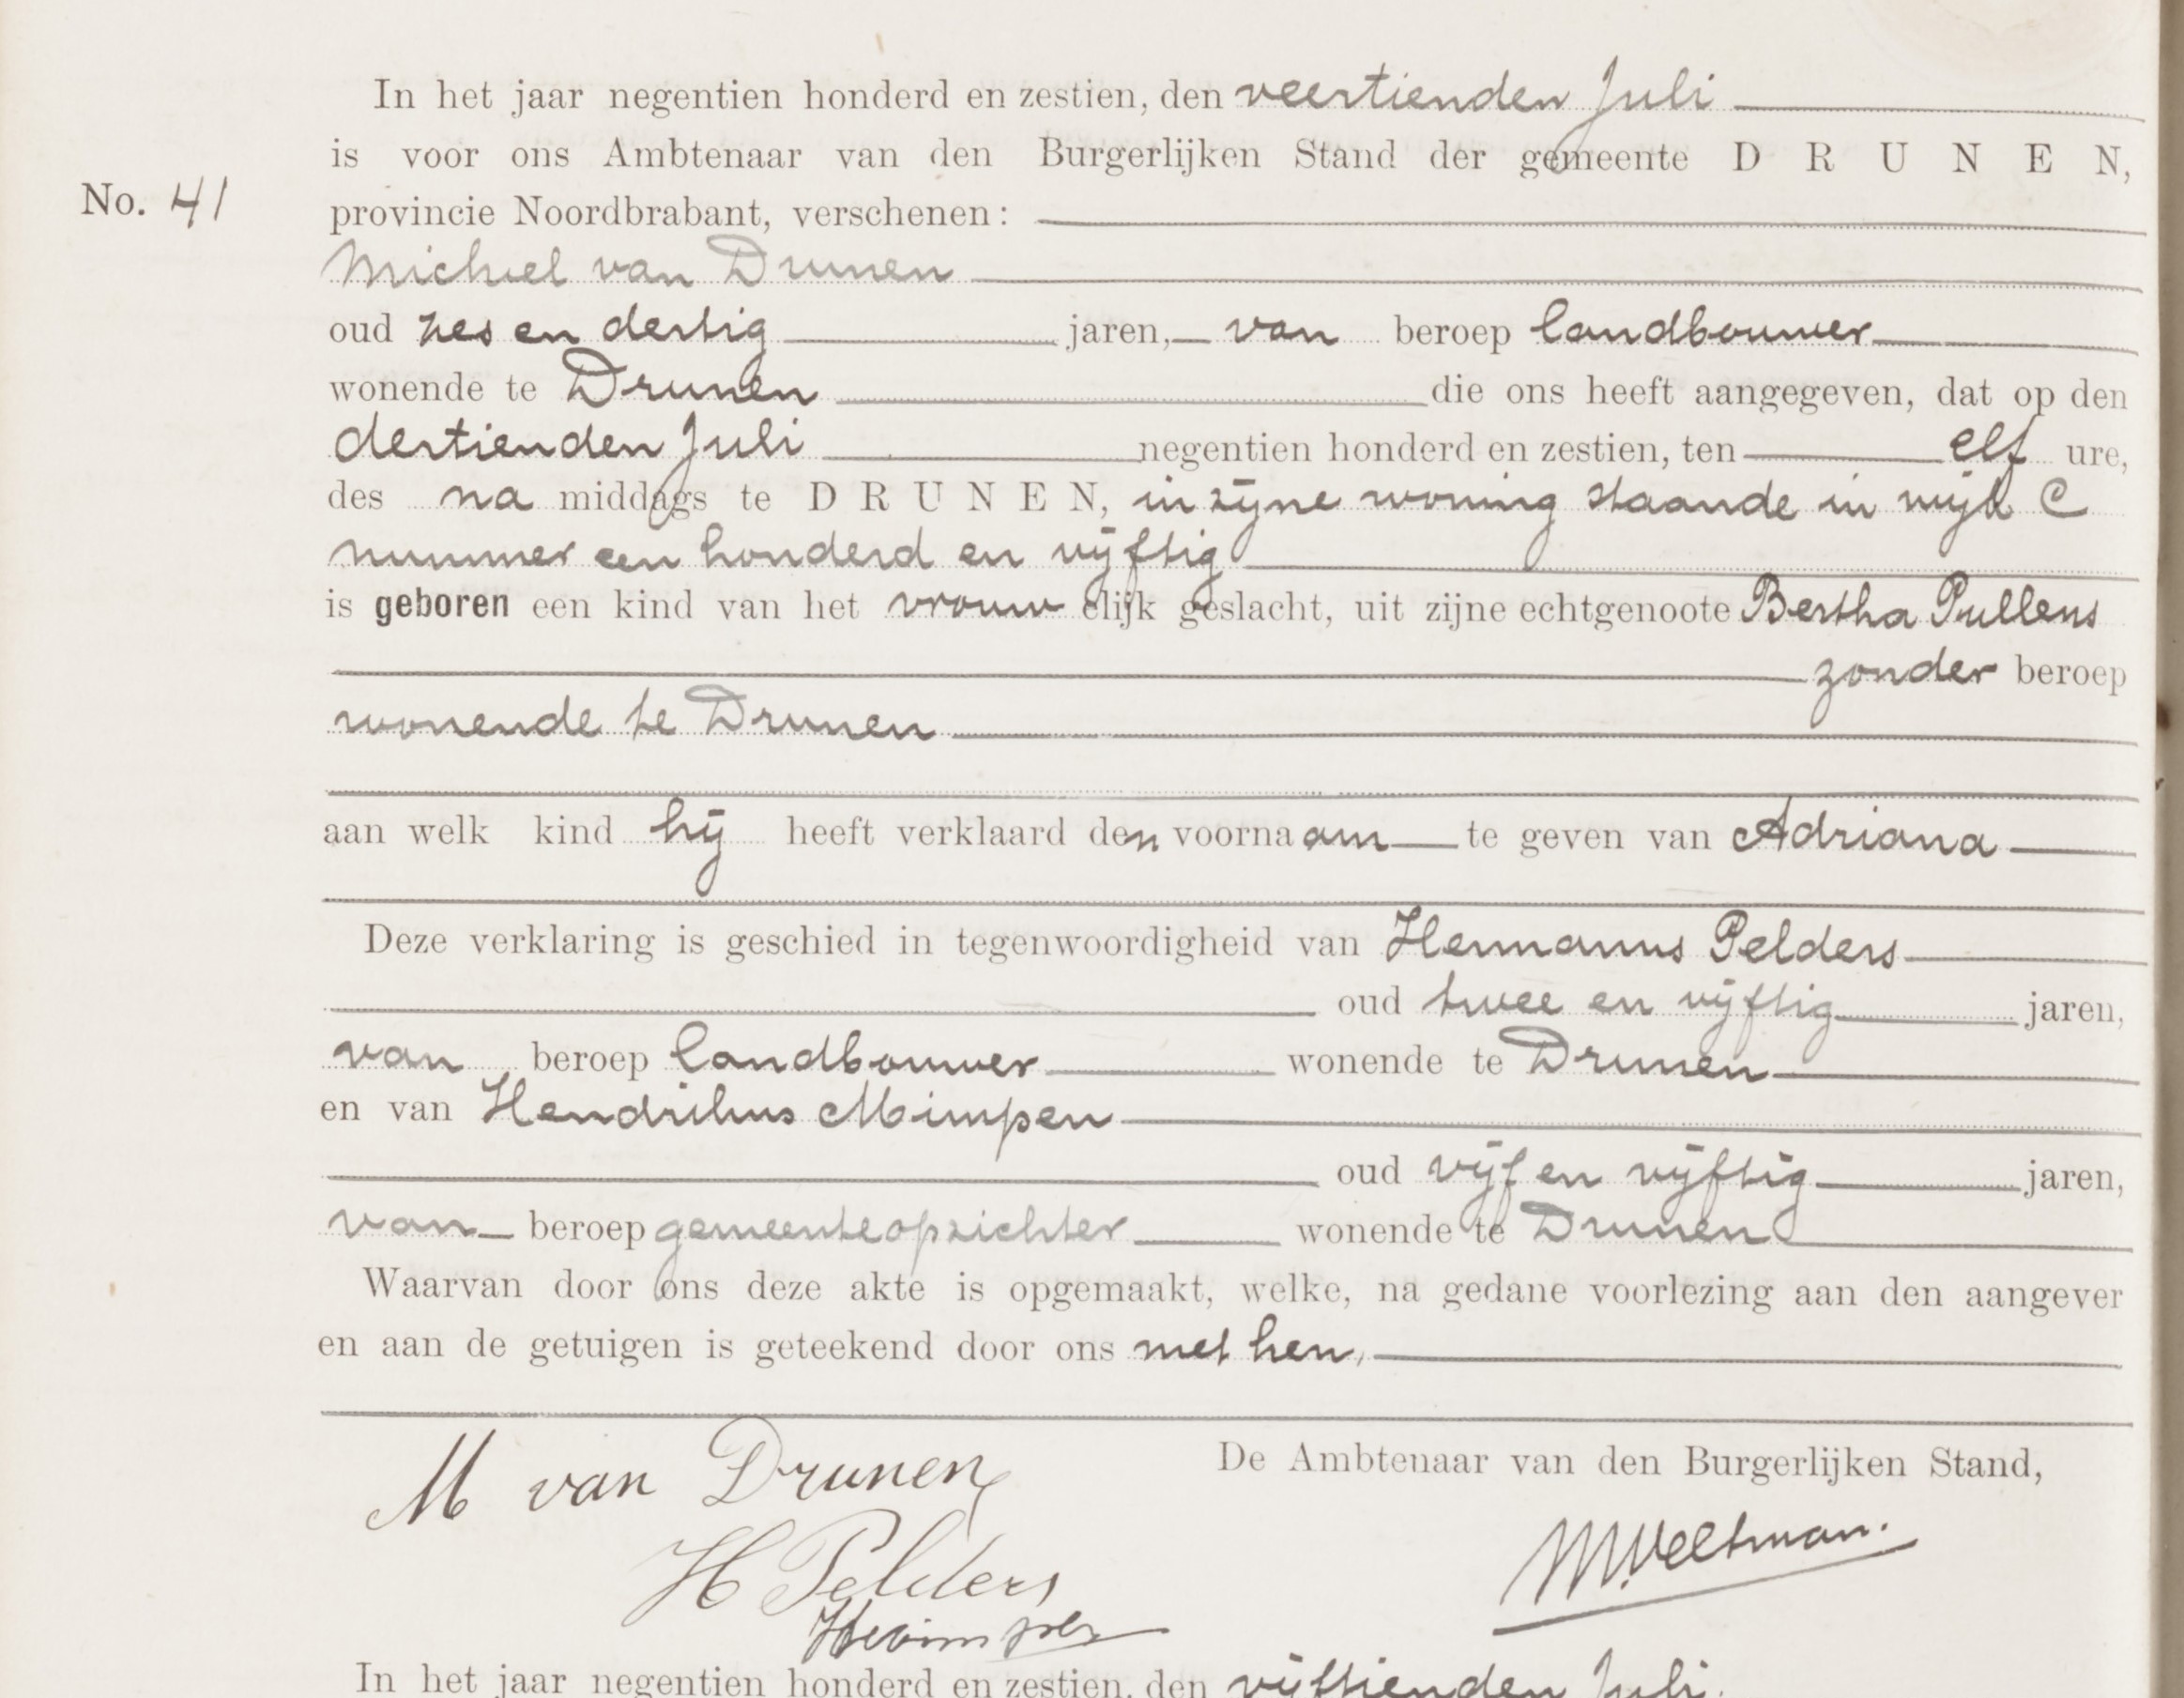 In het jaar negentien honderd en zestien, den veertienden Juli
is voor ons Ambtenaar van den Burgerlijken Stand der gemeente DRUNEN,
No. 41
provincie Noordbrabant, verschenen:
Michiel van Drunen
oud zes en dertig jaren, van beroep landbouwer
wonende te Drunen die ons heeft aangegeven, dat op den
dertienden Juli negentien honderd en zestien, ten elf ure,
des na middags te DRUNEN, in zijne woning staande in wijk C
nummer een honderd en vijftig
is geboren een kind van het vrouwelijk geslacht, uit zijne echtgenoote Bertha Pullens
zonder beroep
wonende te Drunen
aan welk kind hij heeft verklaard den voornaam te geven van Adriana
Deze verklaring is geschied in tegenwoordigheid van Hermanus Pelders
oud twee en vijftig jaren,
van beroep landbouwer wonende te Drunen
en van Hendrikus Mimpen
oud vijf en vijftig jaren,
van beroep gemeenteopzichter wonende te Drunen
Waarvan door ons deze akte is opgemaakt, welke, na gedane voorlezing aan den aangever
en aan de getuigen is geteekend door ons met hen,
M van Drunen
De Ambtenaar van den Burgerlijken Stand,
H Pelders
MWeltman.
In het jaar negentien honderd en zestien, den vijftienden Juli